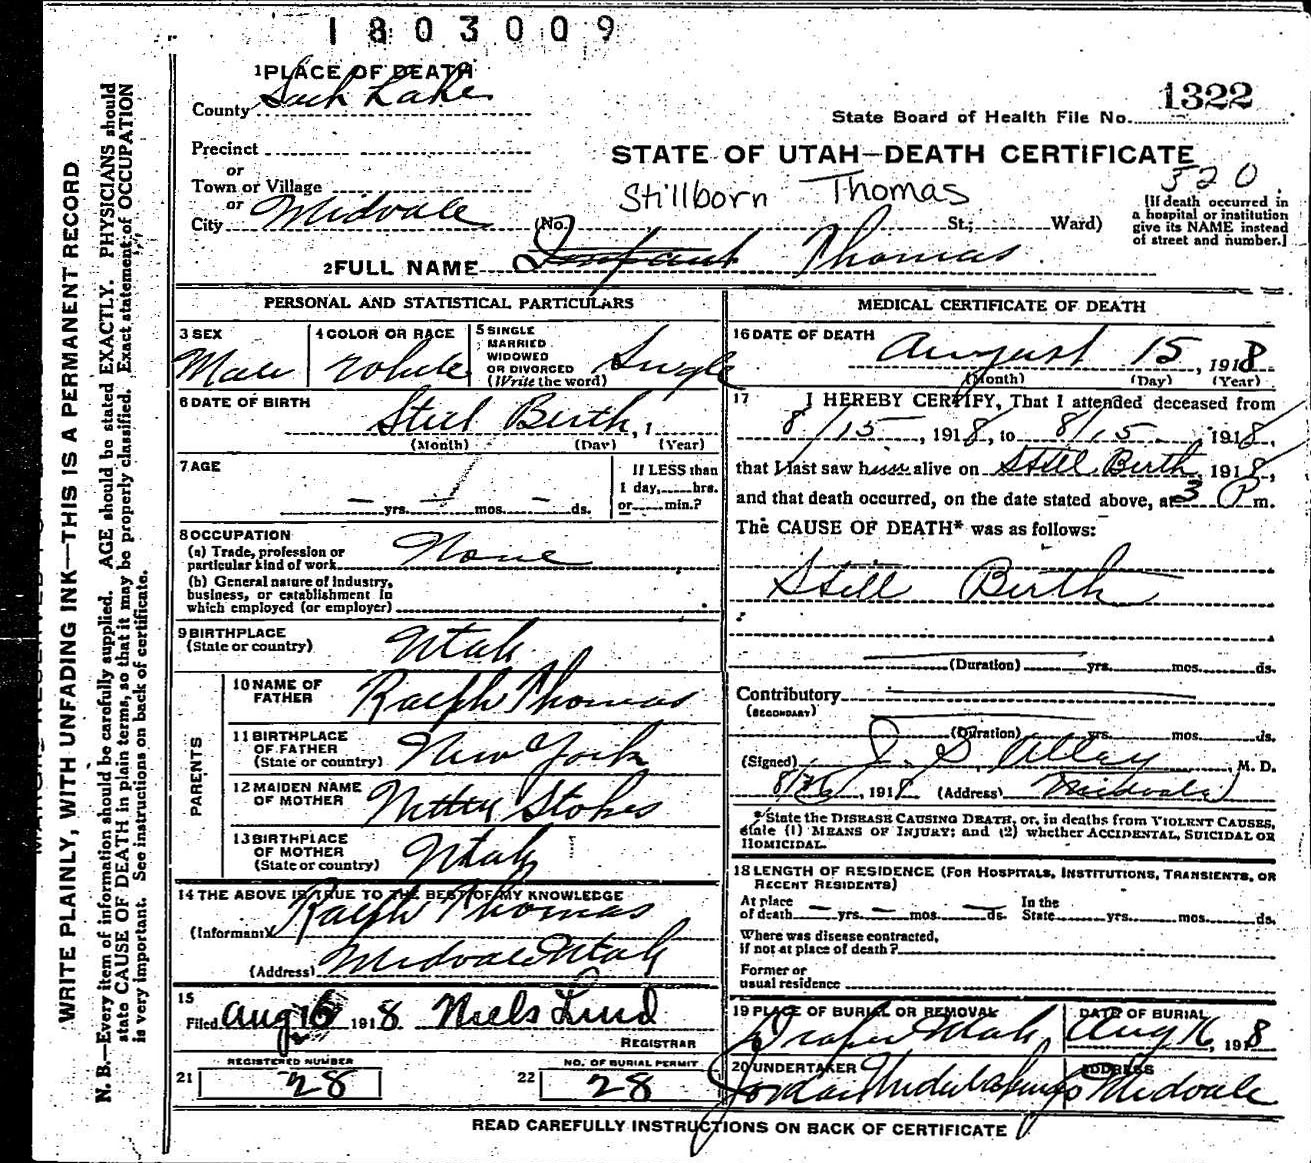 1803009
1 PLACE OF DEATH
County Salt Lake
1322
State Board of Health File No.
Precinct
or
Town or Village
or
City Midvale
STATE OF UTAH—DEATH CERTIFICATE
Stillborn Thomas
520
(No. St.; Ward)
[If death occurred in
a hospital or institution
give its NAME instead
of street and number.]
2 FULL NAME Infant Thomas
PERSONAL AND STATISTICAL PARTICULARS
3 SEX
Male
4 COLOR OR RACE
White
5 SINGLE
MARRIED
WIDOWED
OR DIVORCED
(Write the word)
Single
6 DATE OF BIRTH
Still Birth, 1
(Month) (Day) (Year)
7 AGE
yrs. mos. ds.
If LESS than
1 day, hrs.
or min.?
8 OCCUPATION
(a) Trade, profession or
particular kind of work None
(b) General nature of industry,
business, or establishment in
which employed (or employer)
9 BIRTHPLACE
(State or country) Utah
PARENTS
10 NAME OF
FATHER Ralph Thomas
11 BIRTHPLACE
OF FATHER
(State or country) New York
12 MAIDEN NAME
OF MOTHER Stokes
13 BIRTHPLACE
OF MOTHER
(State or country) Utah
14 THE ABOVE IS TRUE TO THE BEST OF MY KNOWLEDGE
(Informant) Ralph Thomas
(Address) Midvale Utah
15
Filed Aug 16 1918 Niels Lind
REGISTRAR
REGISTERED NUMBER
21 28
NO. OF BURIAL PERMIT
22 28
MEDICAL CERTIFICATE OF DEATH
16 DATE OF DEATH
August 15, 1918
(Month) (Day) (Year)
17 I HEREBY CERTIFY, That I attended deceased from
8/15, 1918, to 8/15, 1918,
that I last saw him alive on Still Birth, 1918,
and that death occurred, on the date stated above, at 3 P m.
The CAUSE OF DEATH* was as follows:
Still Birth
(Duration) yrs. mos. ds.
Contributory
(SECONDARY)
(Duration) yrs. mos. ds.
(Signed) J. S. Alley, M. D.
8/16, 1918 (Address) Midvale
*State the DISEASE CAUSING DEATH, or, in deaths from VIOLENT CAUSES,
state (1) MEANS OF INJURY; and (2) whether ACCIDENTAL, SUICIDAL OR
HOMICIDAL.
18 LENGTH OF RESIDENCE (FOR HOSPITALS, INSTITUTIONS, TRANSIENTS, OR
RECENT RESIDENTS)
At place
of death yrs. mos. ds.
In the
State yrs. mos. ds.
Where was disease contracted,
if not at place of death?
Former or
usual residence
19 PLACE OF BURIAL OR REMOVAL
Draper Utah
DATE OF BURIAL
Aug 16, 1918
20 UNDERTAKER
Jordan
ADDRESS
Midvale
READ CAREFULLY INSTRUCTIONS ON BACK OF CERTIFICATE
WRITE PLAINLY, WITH UNFADING INK—THIS IS A PERMANENT RECORD
N. B.—Every item of information should be carefully supplied. AGE should be stated EXACTLY. PHYSICIANS should
state CAUSE OF DEATH in plain terms, so that it may be properly classified. Exact statement of OCCUPATION
is very important. See instructions on back of certificate.